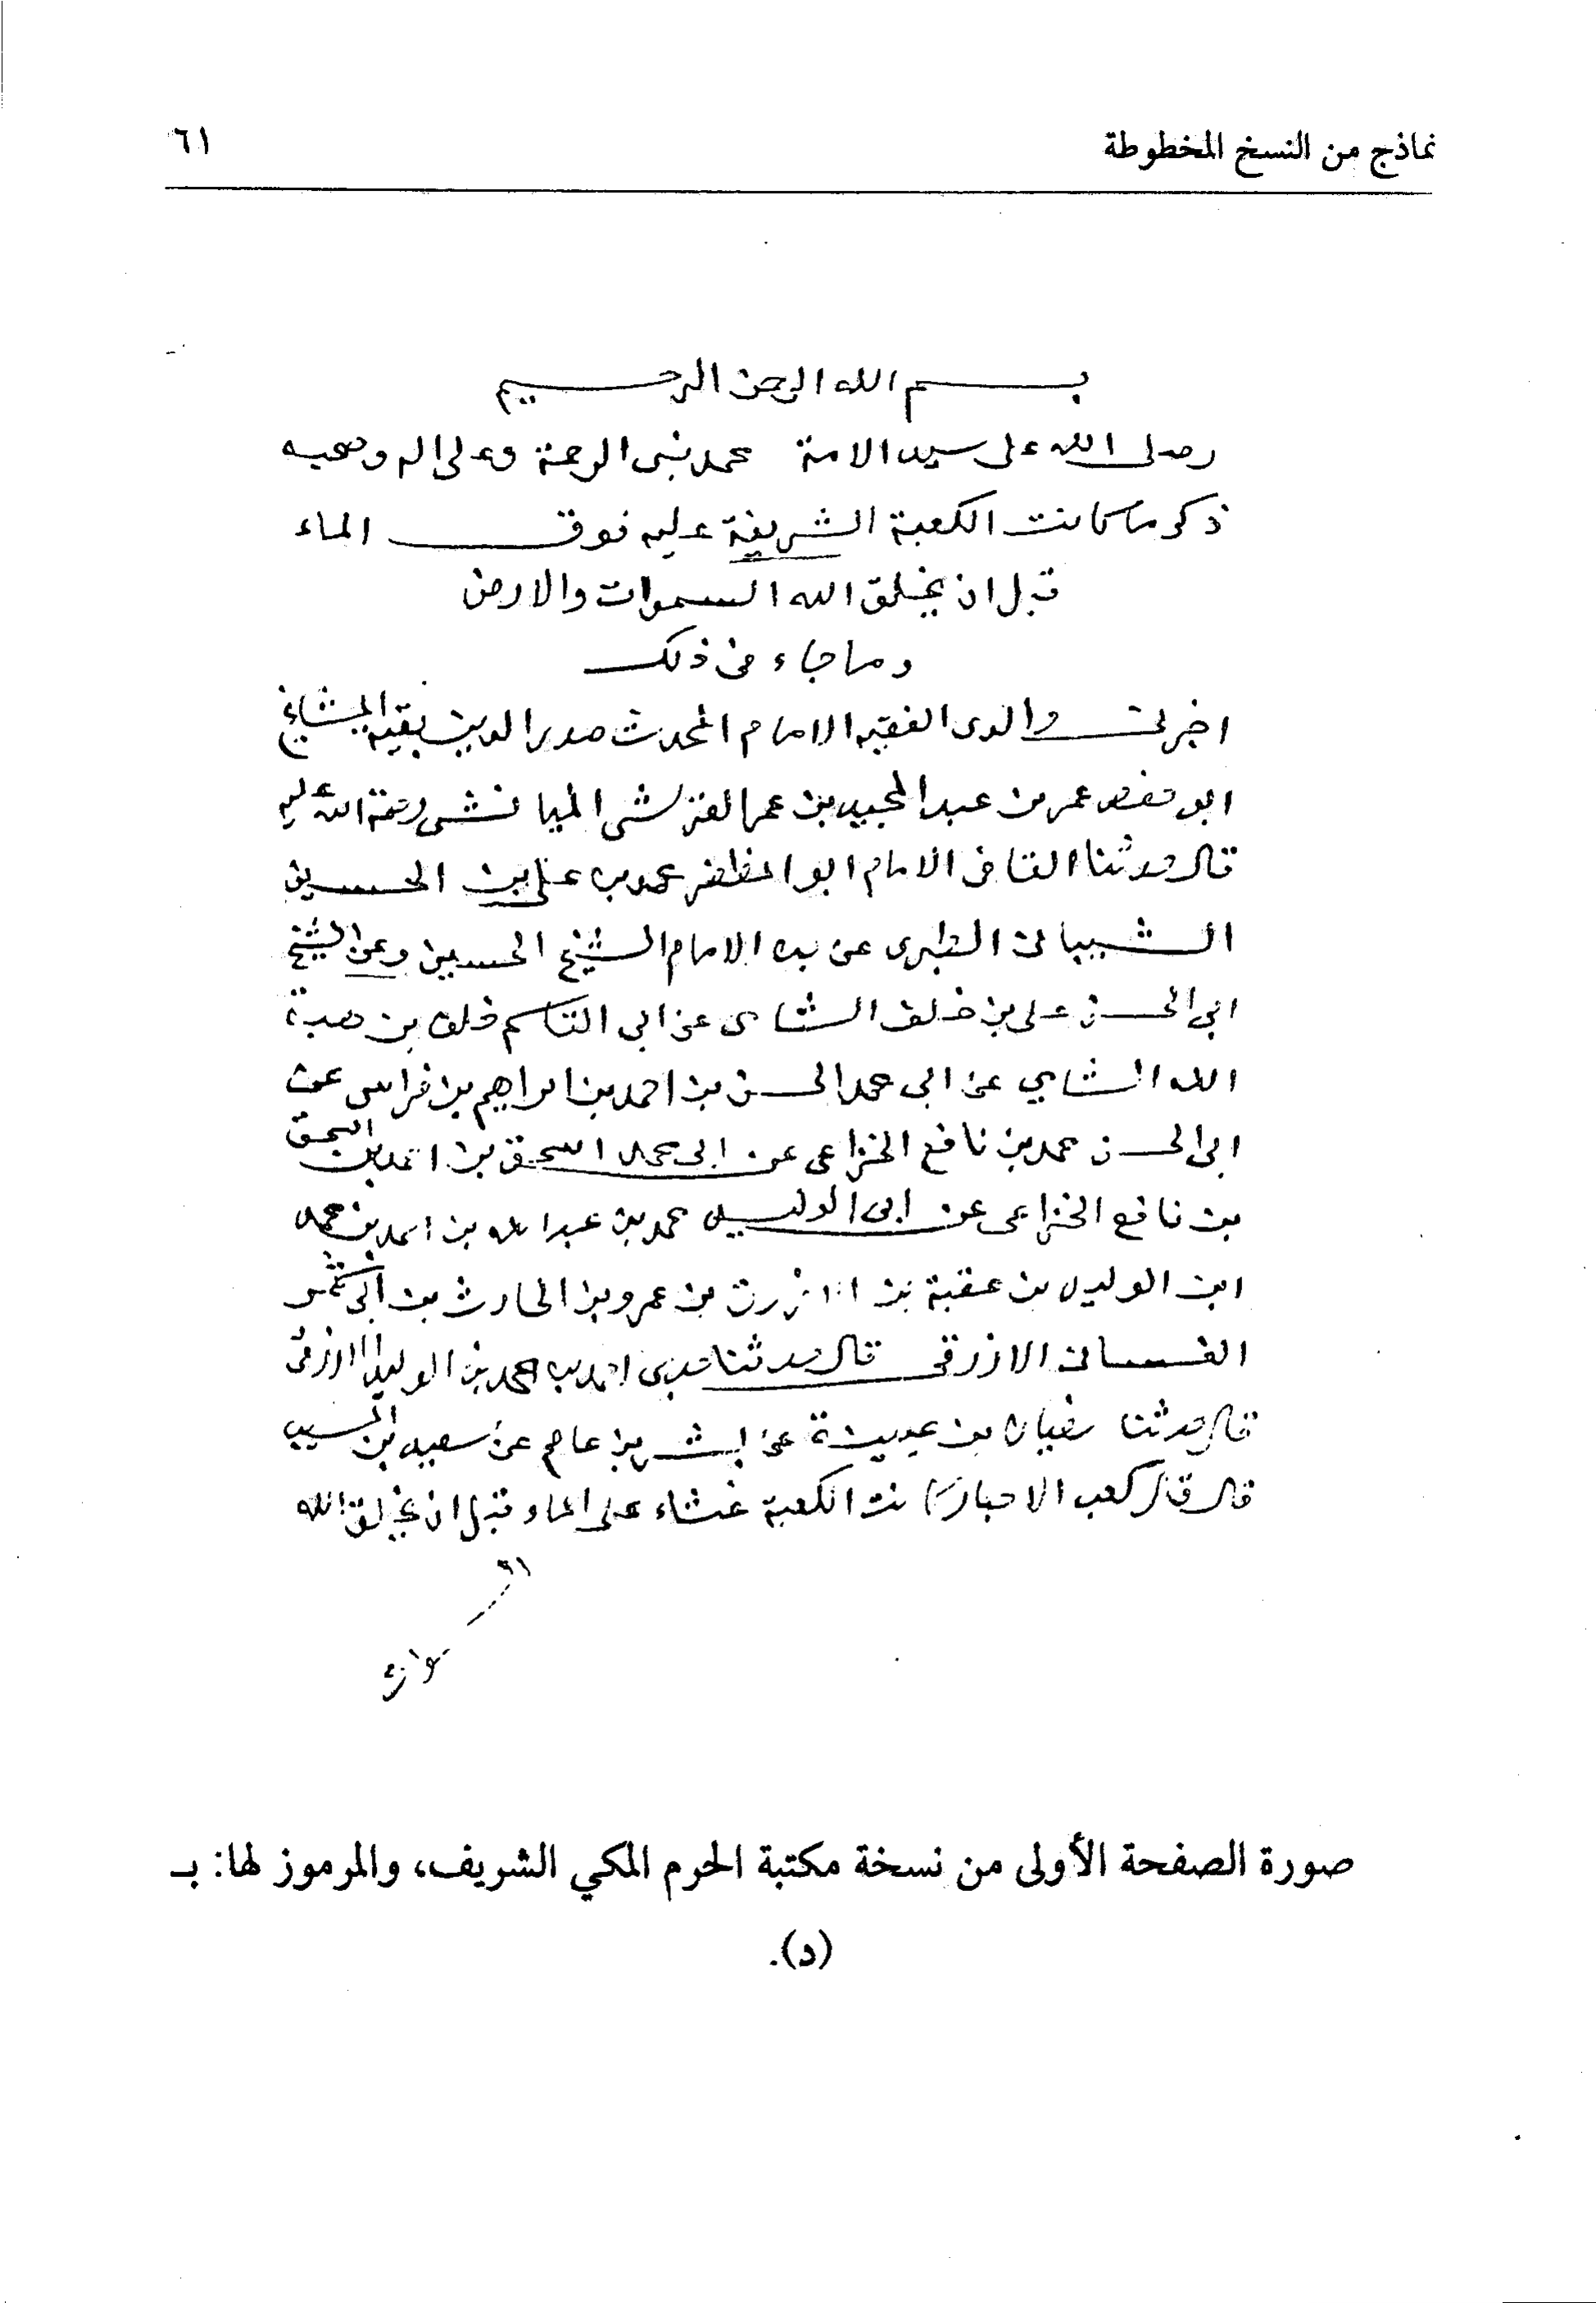 نماذج من النسخ المخطوطة ٦١
بسم الله الرحمن الرحيم
وصلى الله على سيد الامة محمد نبى الرحمة وعلى اله وصحبه
ذكر ما كانت الكعبة الشريفة عليه فوق الماء
قبل ان يخلق الله السموات والارض
وما جاء فى ذلك
اخبرنى والدى الفقيه الامام المحدث صدر الدين بقية المشايخ
ابو حفص عمر بن عبد المجيد بن عمر القرشى الميانشى رحمة الله عليه
قال حدثنا القاضى الامام ابو المظفر محمد بن على بن الحسين
الشيبانى الطبرى عن الامام الشيخ الحسين وعن الشيخ
ابى الحسن على بن خلف الشامى عن ابى القاسم خلف بن هبة
الله الشامي عن ابى محمد الحسن بن احمد بن ابراهيم بن فراس عن
ابى الحسن محمد بن نافع الخزاعى عن ابى محمد اسحق بن احمد بن اسحق
بن نافع الخزاعى عن ابى الوليد محمد بن عبد الله بن احمد بن محمد
ابن الوليد بن عقبة بن الازرق بن عمرو بن الحارث بن ابى شمر
الغسانى الازرقى قال حدثنا جدى احمد بن محمد بن الوليد الازرقى
قال حدثنا سفيان بن عيينة عن بشر بن عاصم عن سعيد بن المسيب
قال قال كعب الاحبار كانت الكعبة غثاء على الماء قبل ان يخلق الله
صورة الصفحة الأولى من نسخة مكتبة الحرم المكي الشريف، والمرموز لها: بـ
(د).